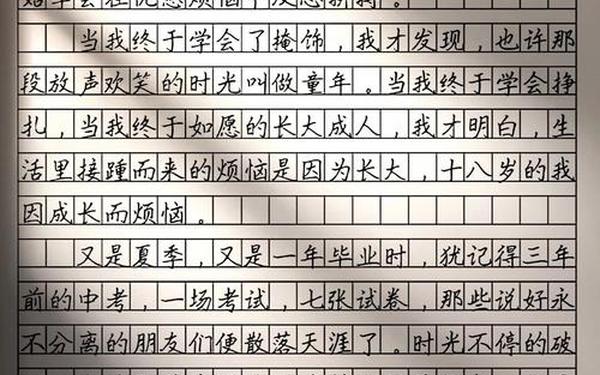 始学会在忧愁烦恼，反思新拘。
当我终于学会了掩饰，我才发现，也许那
段放声欢笑的时光叫做童年。当我终于学会挣
扎，当我终于如愿的长大成人，我才明白，生
活里接踵而来的烦恼是因为长大，十八岁的我
因成长而烦恼。
又是夏季，又是一年毕业时，犹记得三年
前的中考，一场考试，七张试卷，那些说好永
不分离的朋友们便散落天涯了。时光不停的破